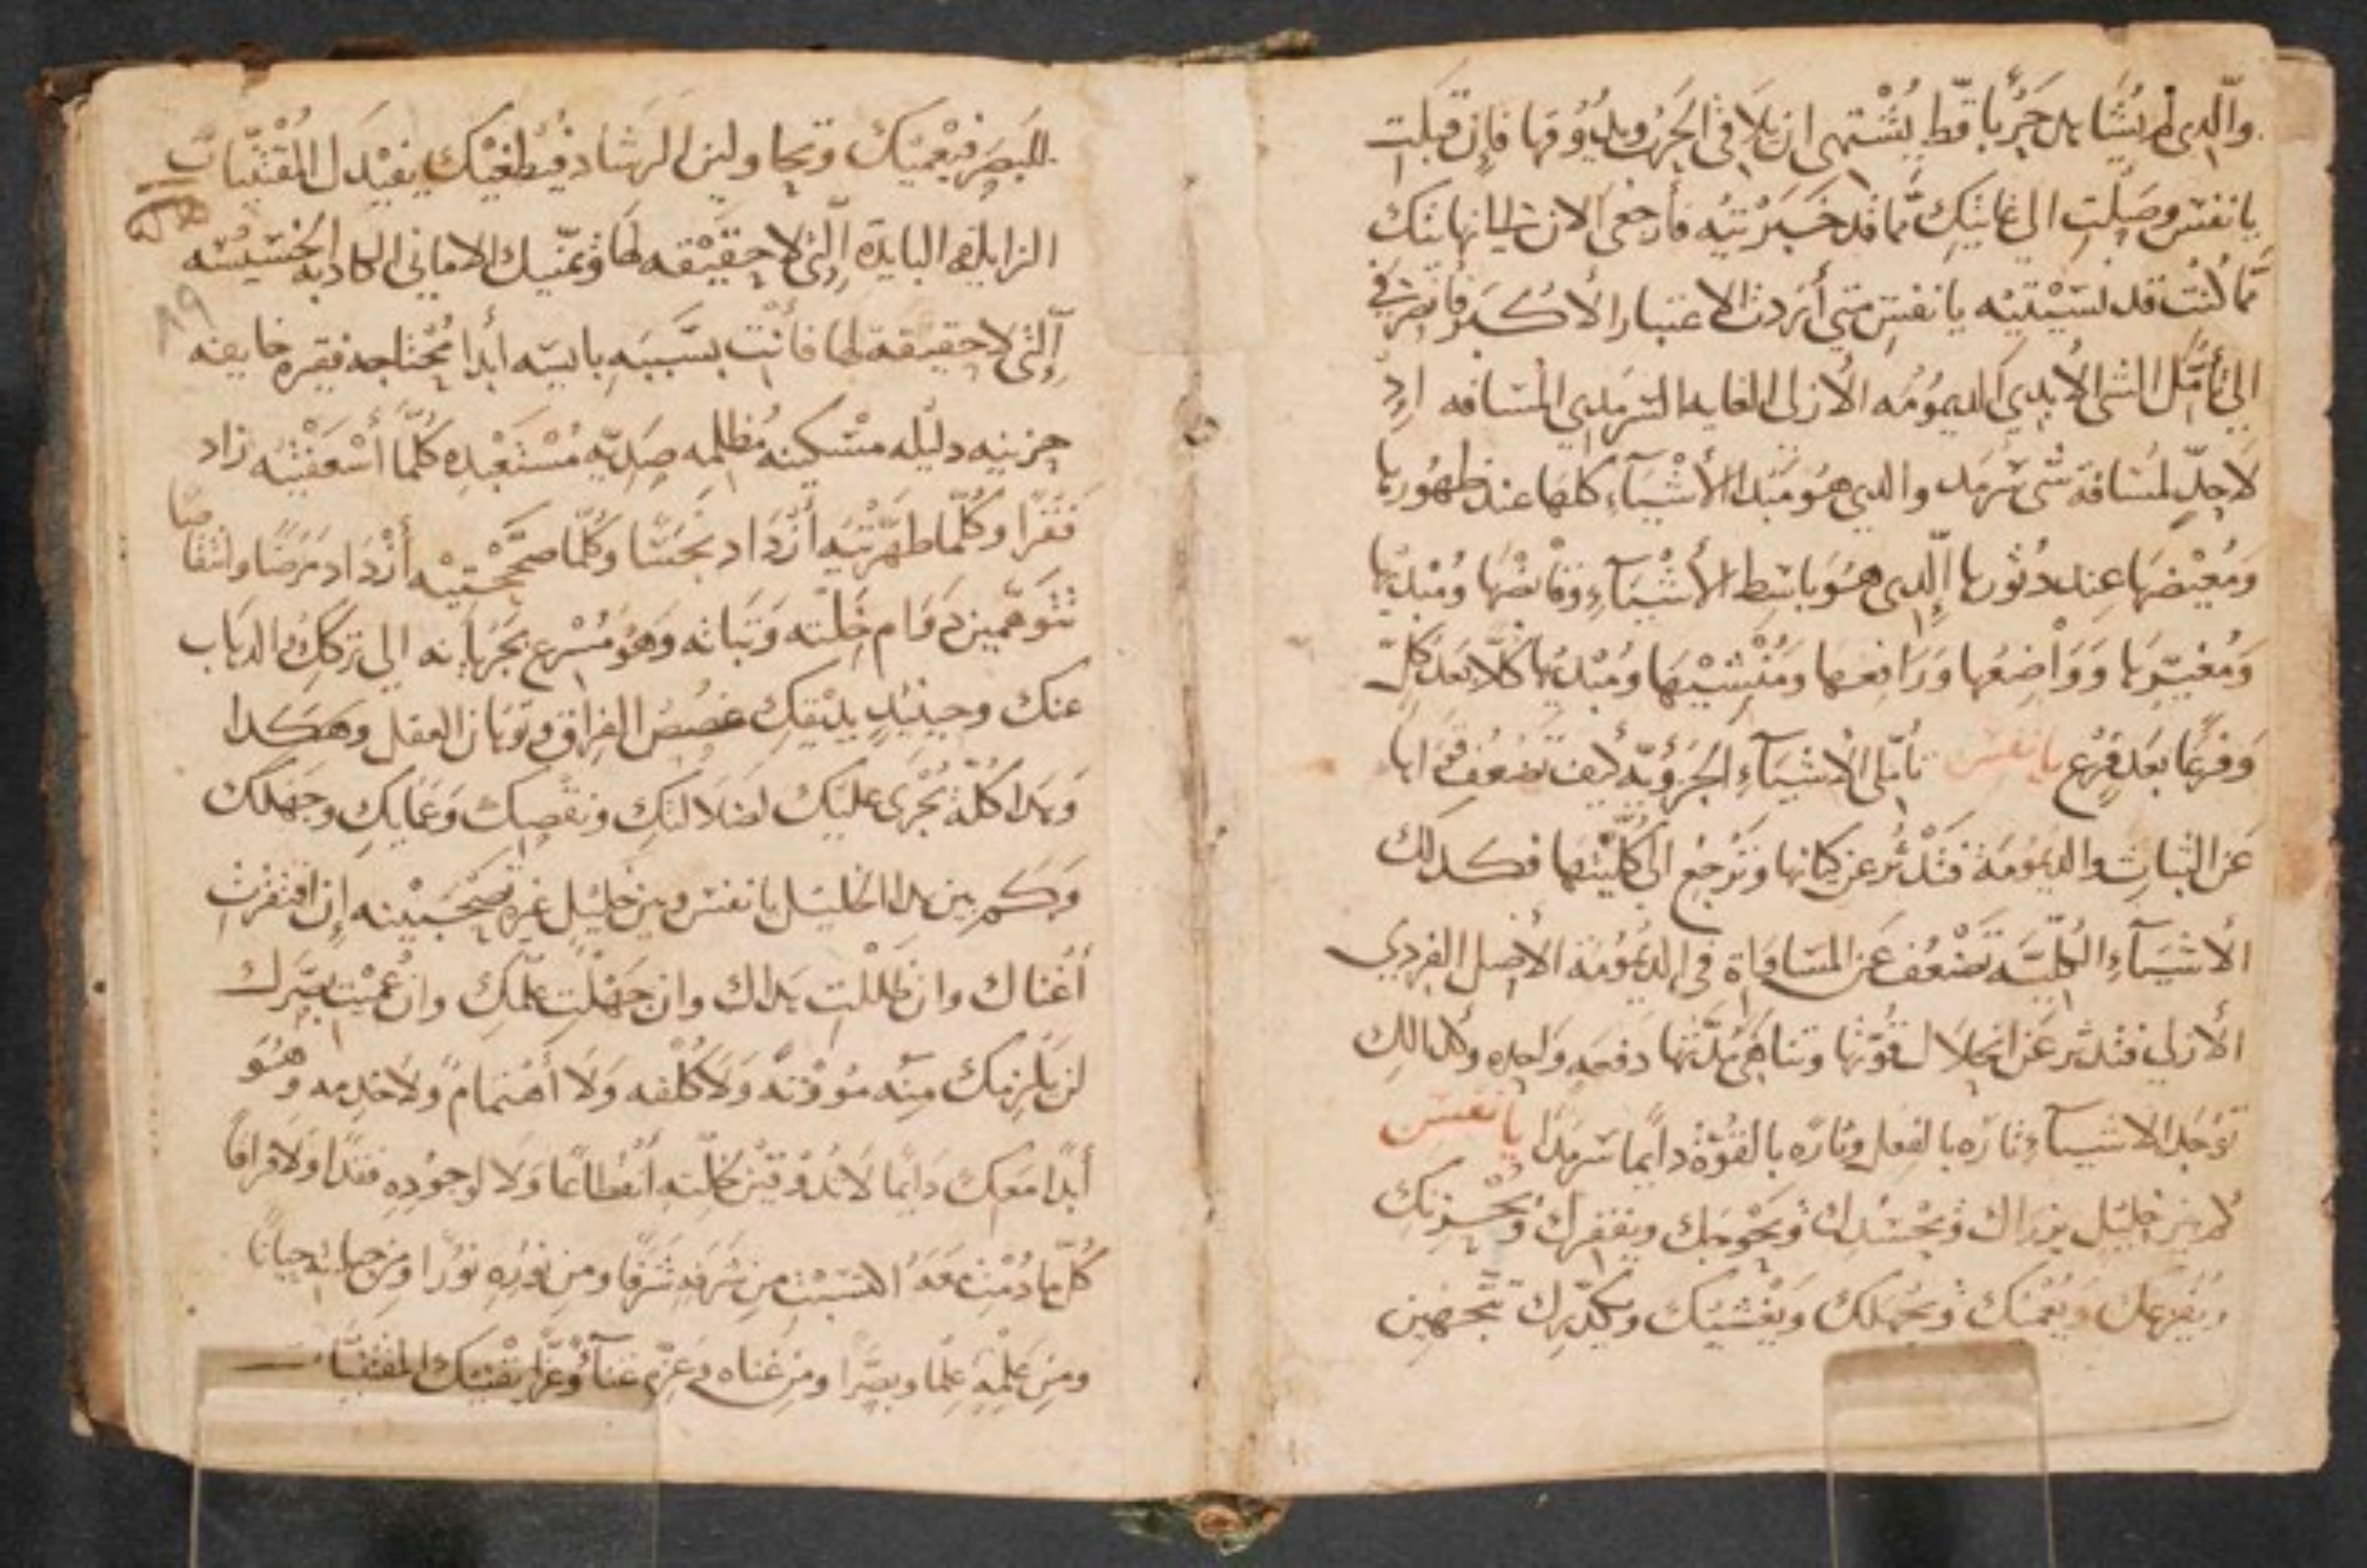 والذي لم يشاهد حربا قط يشتهي ان يلاقي الحرب ويذوقها فإن قبلت
يا نفس وصلت الي غايتك مما قد خبرتيه فأرجعي الان الي نهايتك
مما كنت قد نسيتيه يا نفس متي أردت الاعتبار الأكبر فانصرفي
الي تأمل الشي الأبدي الديمومه الأزلي الغايه السرمدي المسافه اذ
لا حد لمسافة شي سرمد والذي هو مبدا الأشيآء كلها عند ظهورها
ومغيضها عند دثورها الذي هو باسط الأشيآء وقابضها ومبديها
ومغيرها وواضعها ورافعها ومنشيها ومبديها كلا بعد كل
وفرعا بعد فرع يا نفس تأملي الأشيآء الجزويه كيف تضعف
عن الثبات والديمومة فتدثر عن كيانها وترجع الي كليتها فكذلك
الأشيآء الكلية تضعف عن المساواة في الديمومة الأصل الفردي
الأزلي فتدثر عن انحلال قوتها وتناهي مدتها دفعه واحده وكذلك
توجد الاشيآء تاره بالفعل وتاره بالقوة دايما سرمدا يا نفس
كم من خليل يودك ويحسدك ويحوجك ويفقرك ويحزنك
ويفزعك ويعميك ويجهلك ويغشيك ويكدرك تتجهين
للبصر فيعميك وتحاولين الرشاد فيطغيك يفيدك المقتنيات
الزايله البايدة التي لا حقيقه لها ويمنيك الاماني الكاذبه الخسيسه
التي لا حقيقة لها فأنت بسببه بايسه أبدا محتاجه فقيره خايفه
حزينه ذليله مسكينه مظلمه صديه مستعبده كلما أسعفتيه زاد
فقرا وكلما طهرتيه أزداد نجسا وكلما صححتيه أزداد مرضا وانتقاصا
تتوهمين دوام خلته وثباته وهو مسرع بجريانه الي تركك والذهاب
عنك وحينيذ يذيقك غصص الفراق وتوهان العقل وهكدا
وهذا كله يجري عليك لضلالتك ونقصك وعمايك وجهلك
وكم بين هذا الخليل يا نفس وبين خليل غيره تصحبينه إن افتقرت
أغناك وان ظللت هداك وان جهلت علمك وان عميت بصرك
لن يلزمك منه موونة ولا كلفه ولا أهتمام ولا خدمه وهو
أبدا معك دايما لا تذوقين لخلته أنقطاعا ولا لوجوده فقدا ولا فراقا
كل ما دمت معه اكتسبت من شرفه شرفا ومن نوره نورا ومن حياته حياتا
ومن علمه علما وبصرا ومن غناه وعزه غنآ وعزا يقنيك المقتنيات
19